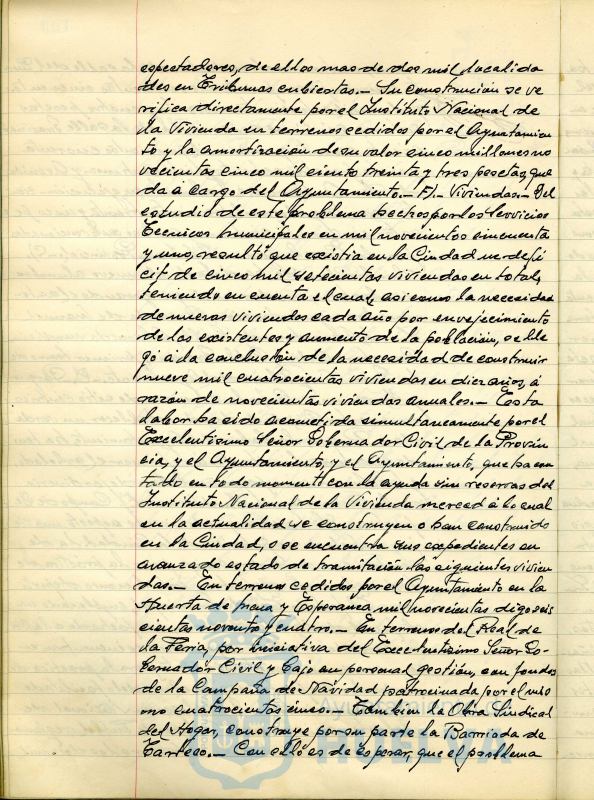 espectadores, de ellos mas de dos mil localida
des en Tribunas cubiertas.- Su construcción se ve
rifica directamente por el Instituto Nacional de
la Vivienda en terrenos cedidos por el Ayuntamien
to y la amortización de su valor cinco millones no
vecientas cinco mil ciento treinta y tres pesetas, que
da á cargo del Ayuntamiento.- F).- Viviendas.- Del
estudio de este problema hechos por los Servicios
Tecnicos Municipales en mil novecientos cincuenta
y uno, resultó que existia en la Ciudad un defi
cit de cinco mil setecientas viviendas en total,
teniendo en cuenta el cual, asi como la necesidad
de nuevas viviendas cada año por envejecimiento
de las existentes y aumento de la población, se lle
gó á la conclusión de la necesidad de construir
nueve mil cuatrocientas viviendas en diez años, á
razón de novecientas viviendas anuales.- Esta
labor ha sido acometida simultaneamente por el
Excelentisimo Señor Gobernador Civil de la Provin
cia, y el Ayuntamiento, y el Ayuntamiento, que ha con
tado en todo momento con la ayuda sin reservas del
Instituto Nacional de la Vivienda merced á lo cual
en la actualidad se construyen o han construido
en la Ciudad, o se encuentra sus expedientes en
avanzado estado de tramitación las siguientes vivien
das.- En terrenos cedidos por el Ayuntamiento en la
Huerta de Mena y Esperanza mil novecientas digo seis
cientas noventa y cuatro.- En terrenos del Real de
la Feria, por iniciativa del Excelentisimo Señor Go-
bernador Civil y bajo su personal gestión, con fondos
de la Campaña de Navidad patrocinada por el mis
mo cuatrocientas cinco.- Tambien la Obra Sindical
del Hogar, construye por su parte la Barriada de
Tarteso.- Con ello es de esperar, que el problema